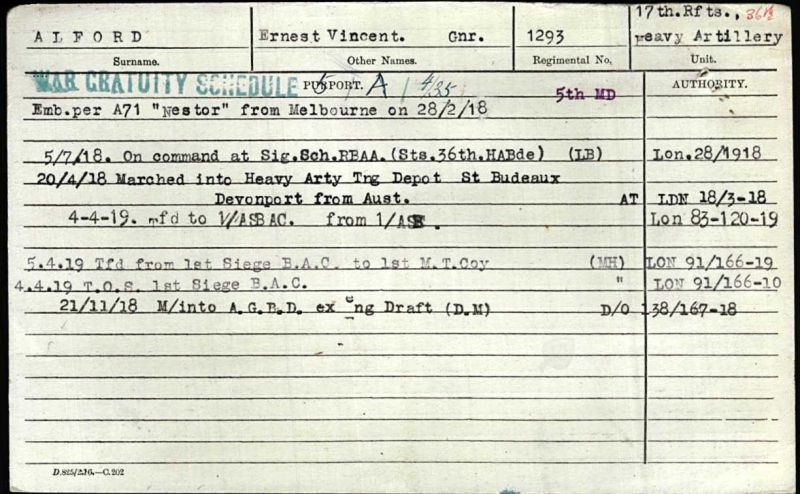 17th.Rfts., 36th
ALFORD Ernest Vincent. Gnr. 1293 Heavy Artillery
Surname. Other Names. Regimental No. Unit.
WAR GRATUITY SCHEDULE PURPORT. A 5th MD AUTHORITY.
Emb.per A71 "Nestor" from Melbourne on 28/2/18
5/7/18. On command at Sig.Sch.RBAA.(Sts.36th.HABde) (LB) Lon.28/1918
20/4/18 Marched into Heavy Arty Trg Depot St Budeaux
Devonport from Aust. AT LDN 18/3-18
4-4-19. Tfd to 1/ASBAC. from Lon 83-120-19
5.4.19 Tfd from 1st Siege B.A.C. to 1st M.T.Coy (MH) LON 91/166-19
4.4.19 T.O.S. 1st Siege B.A.C. " LON 91/166-10
21/11/18 M/into A.G.B.D. ex Eng Draft (D.M) D/O 138/167-18
D.825/2.16.—C.202